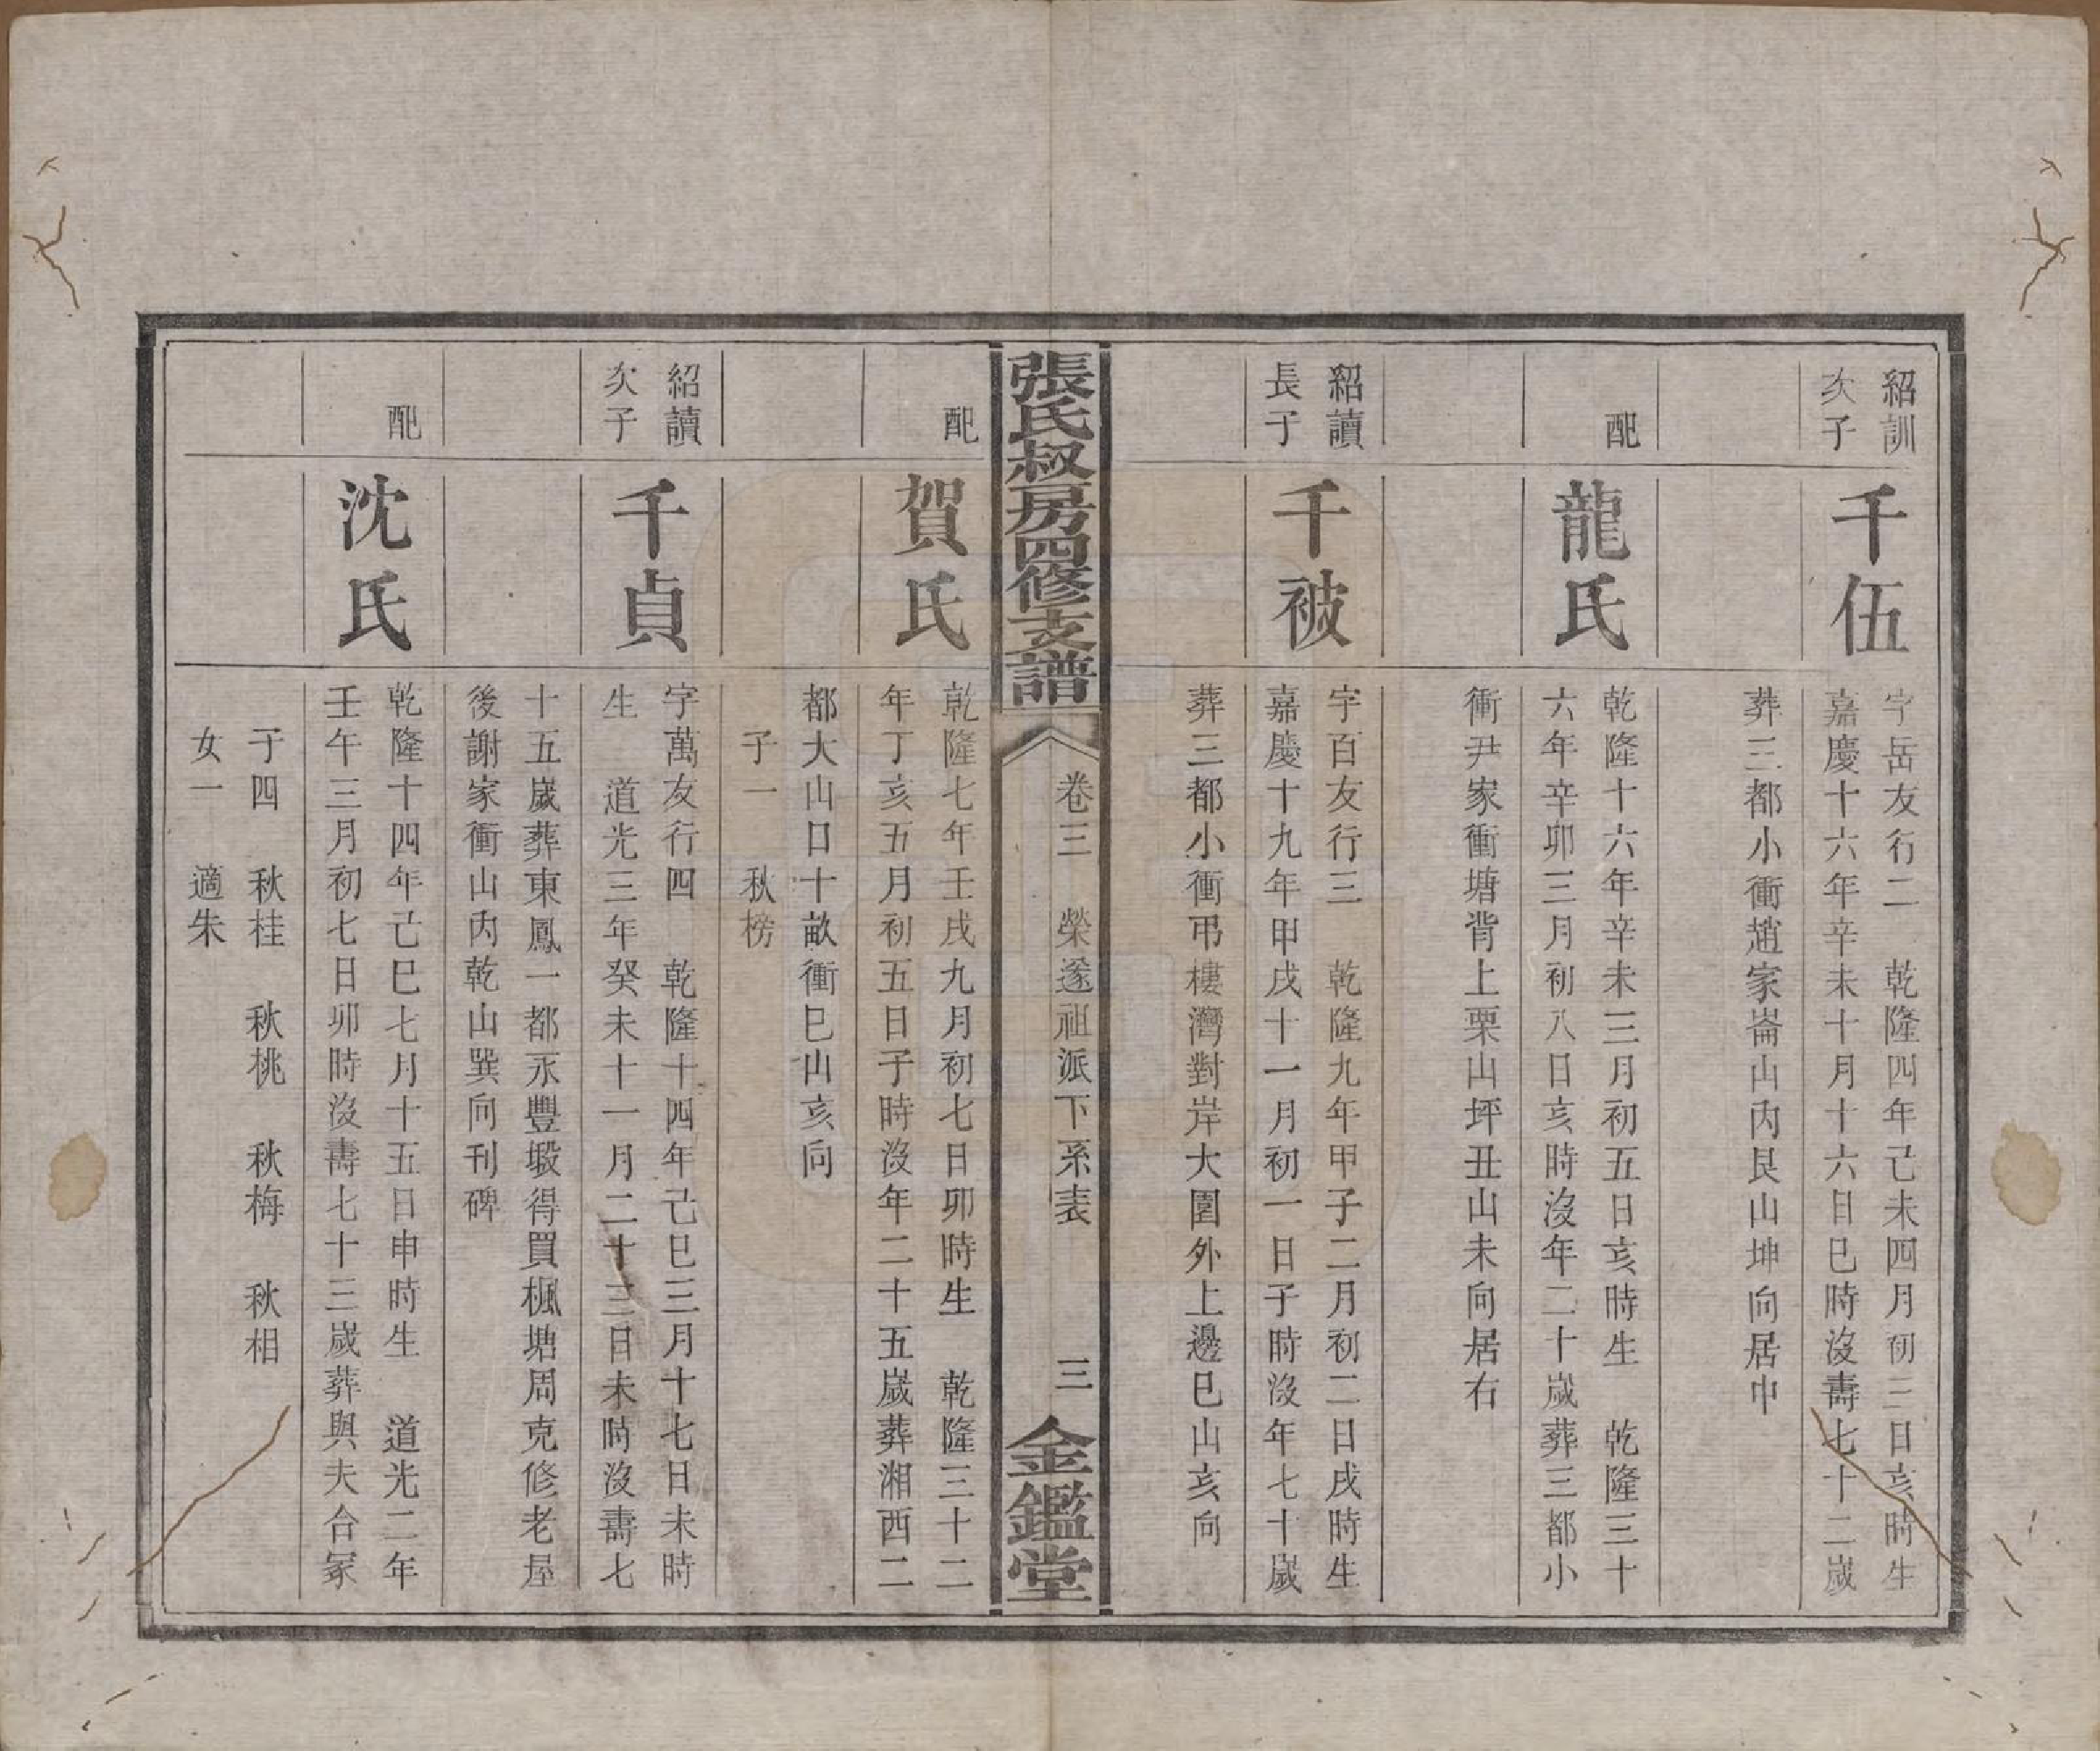 紹訓
次子
千伍
字岳友行二　乾隆四年己未四月初三日亥時生
嘉慶十六年辛未十月十六日巳時沒壽七十二歲
葬三都小衝趙家崙山內艮山坤向居中
配
龍氏
乾隆十六年辛未三月初五日亥時生　乾隆三十
六年辛卯三月初八日亥時沒年二十歲葬三都小
衝尹家衝塘背上栗山坪丑山未向居右
紹讀
長子
千被
字百友行三　乾隆九年甲子二月初二日戌時生
嘉慶十九年甲戌十一月初一日子時沒年七十歲
葬三都小衝弔樓灣對岸大圍外上邊巳山亥向
張氏叔房四修支譜
卷三　榮遂祖派下系表
三
金鑑堂
配
賀氏
乾隆七年壬戌九月初七日卯時生　乾隆三十二
年丁亥五月初五日子時沒年二十五歲葬湘西二
都大山口十畝衝巳山亥向
子一　秋榜
紹讀
次子
千貞
字萬友行四　乾隆十四年己巳三月十七日未時
生　道光三年癸未十一月二十三日未時沒壽七
十五歲葬東鳳一都永豐塅得買楓塘周克修老屋
後謝家衝山內乾山巽向刊碑
配
沈氏
乾隆十四年己巳七月十五日申時生　道光二年
壬午三月初七日卯時沒壽七十三歲葬與夫合冢
子四　秋桂　秋桃　秋梅　秋相
女一　適朱